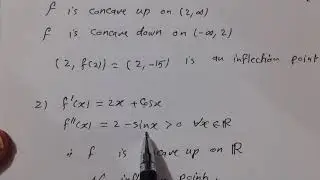 f is concave up on (2, ∞)
f is concave down on (-∞, 2)
(2, f(2)) = (2, -15) is an inflection point
2) f'(x) = 2x + cosx
f''(x) = 2 - sinx > 0 ∀x ∈ ℝ
∴ f is concave up on ℝ